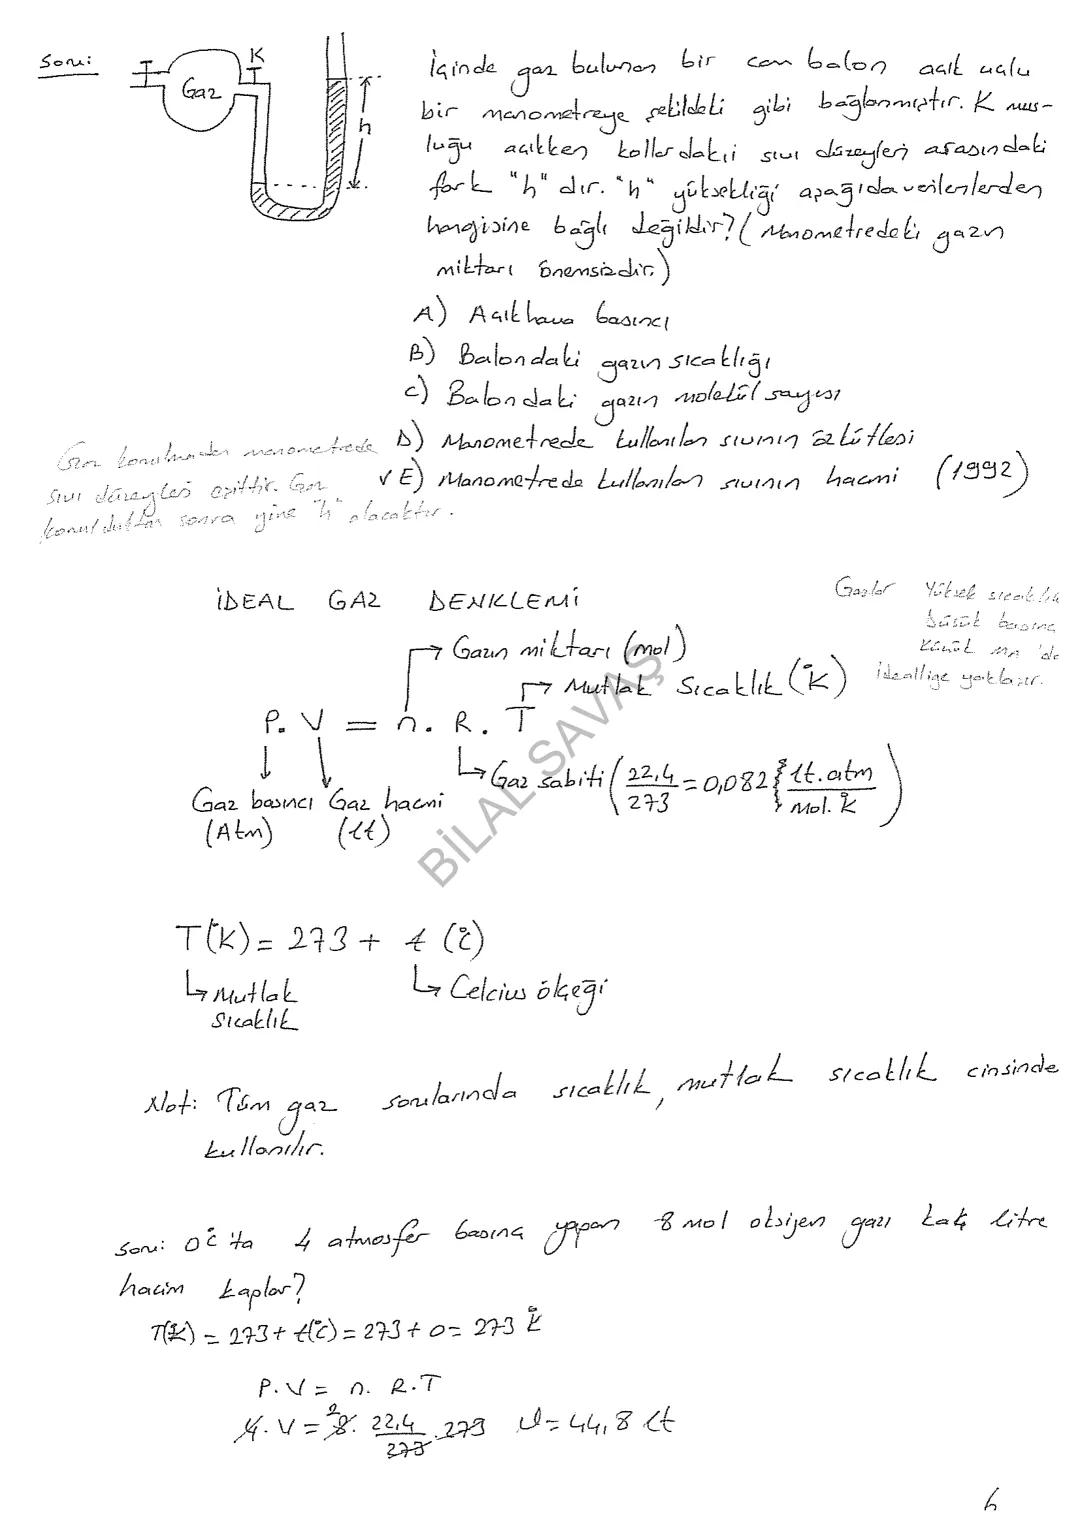 Soru:
Gaz
K
h
İçinde gaz bulunan bir cam balon açık uçlu
bir manometreye şekildeki gibi bağlanmıştır. K mus-
luğu açıkken kollardaki sıvı düzeyleri arasındaki
fark "h" dır. "h" yüksekliği aşağıda verilenlerden
hangisine bağlı değildir? (Manometredeki gazın
miktarı önemsizdir.)
A) Açıkhava basıncı
B) Balondaki gazın sıcaklığı
C) Balondaki gazın molekül sayısı
D) Manometrede kullanılan sıvının özkütlesi
√ E) Manometrede kullanılan sıvının hacmi (1992)
Gaz konulmadan manometrede
sıvı düzeyleri eşittir. Gaz
konulduktan sonra yine "h" olacaktır.
İDEAL GAZ DENKLEMİ
Gazlar Yüksek sıcaklık
Düşük basınç
Küçük MA 'da
ideallige yaklaşır.
Gazın miktarı (mol)
Mutlak Sıcaklık (°K)
P. V = n. R. T
Gaz sabiti (22,4/273 = 0,082 {lt.atm/Mol.°K)
Gaz basıncı Gaz hacmi
(Atm) (lt)
BİLAL SAVAŞ
T(°K) = 273 + t (°C)
Mutlak Celcius ölçeği
sıcaklık
Not: Tüm gaz sorularında sıcaklık, mutlak sıcaklık cinsinde
kullanılır.
Soru: 0°C 'ta 4 atmosfer basınç yapan 8 mol oksijen gazı kaç litre
hacim kaplar?
T(°K) = 273 + t(°C) = 273 + 0 = 273 °K
P. V = n. R. T
4. V = 8. 2 22,4/273 . 273 V = 44,8 lt
6